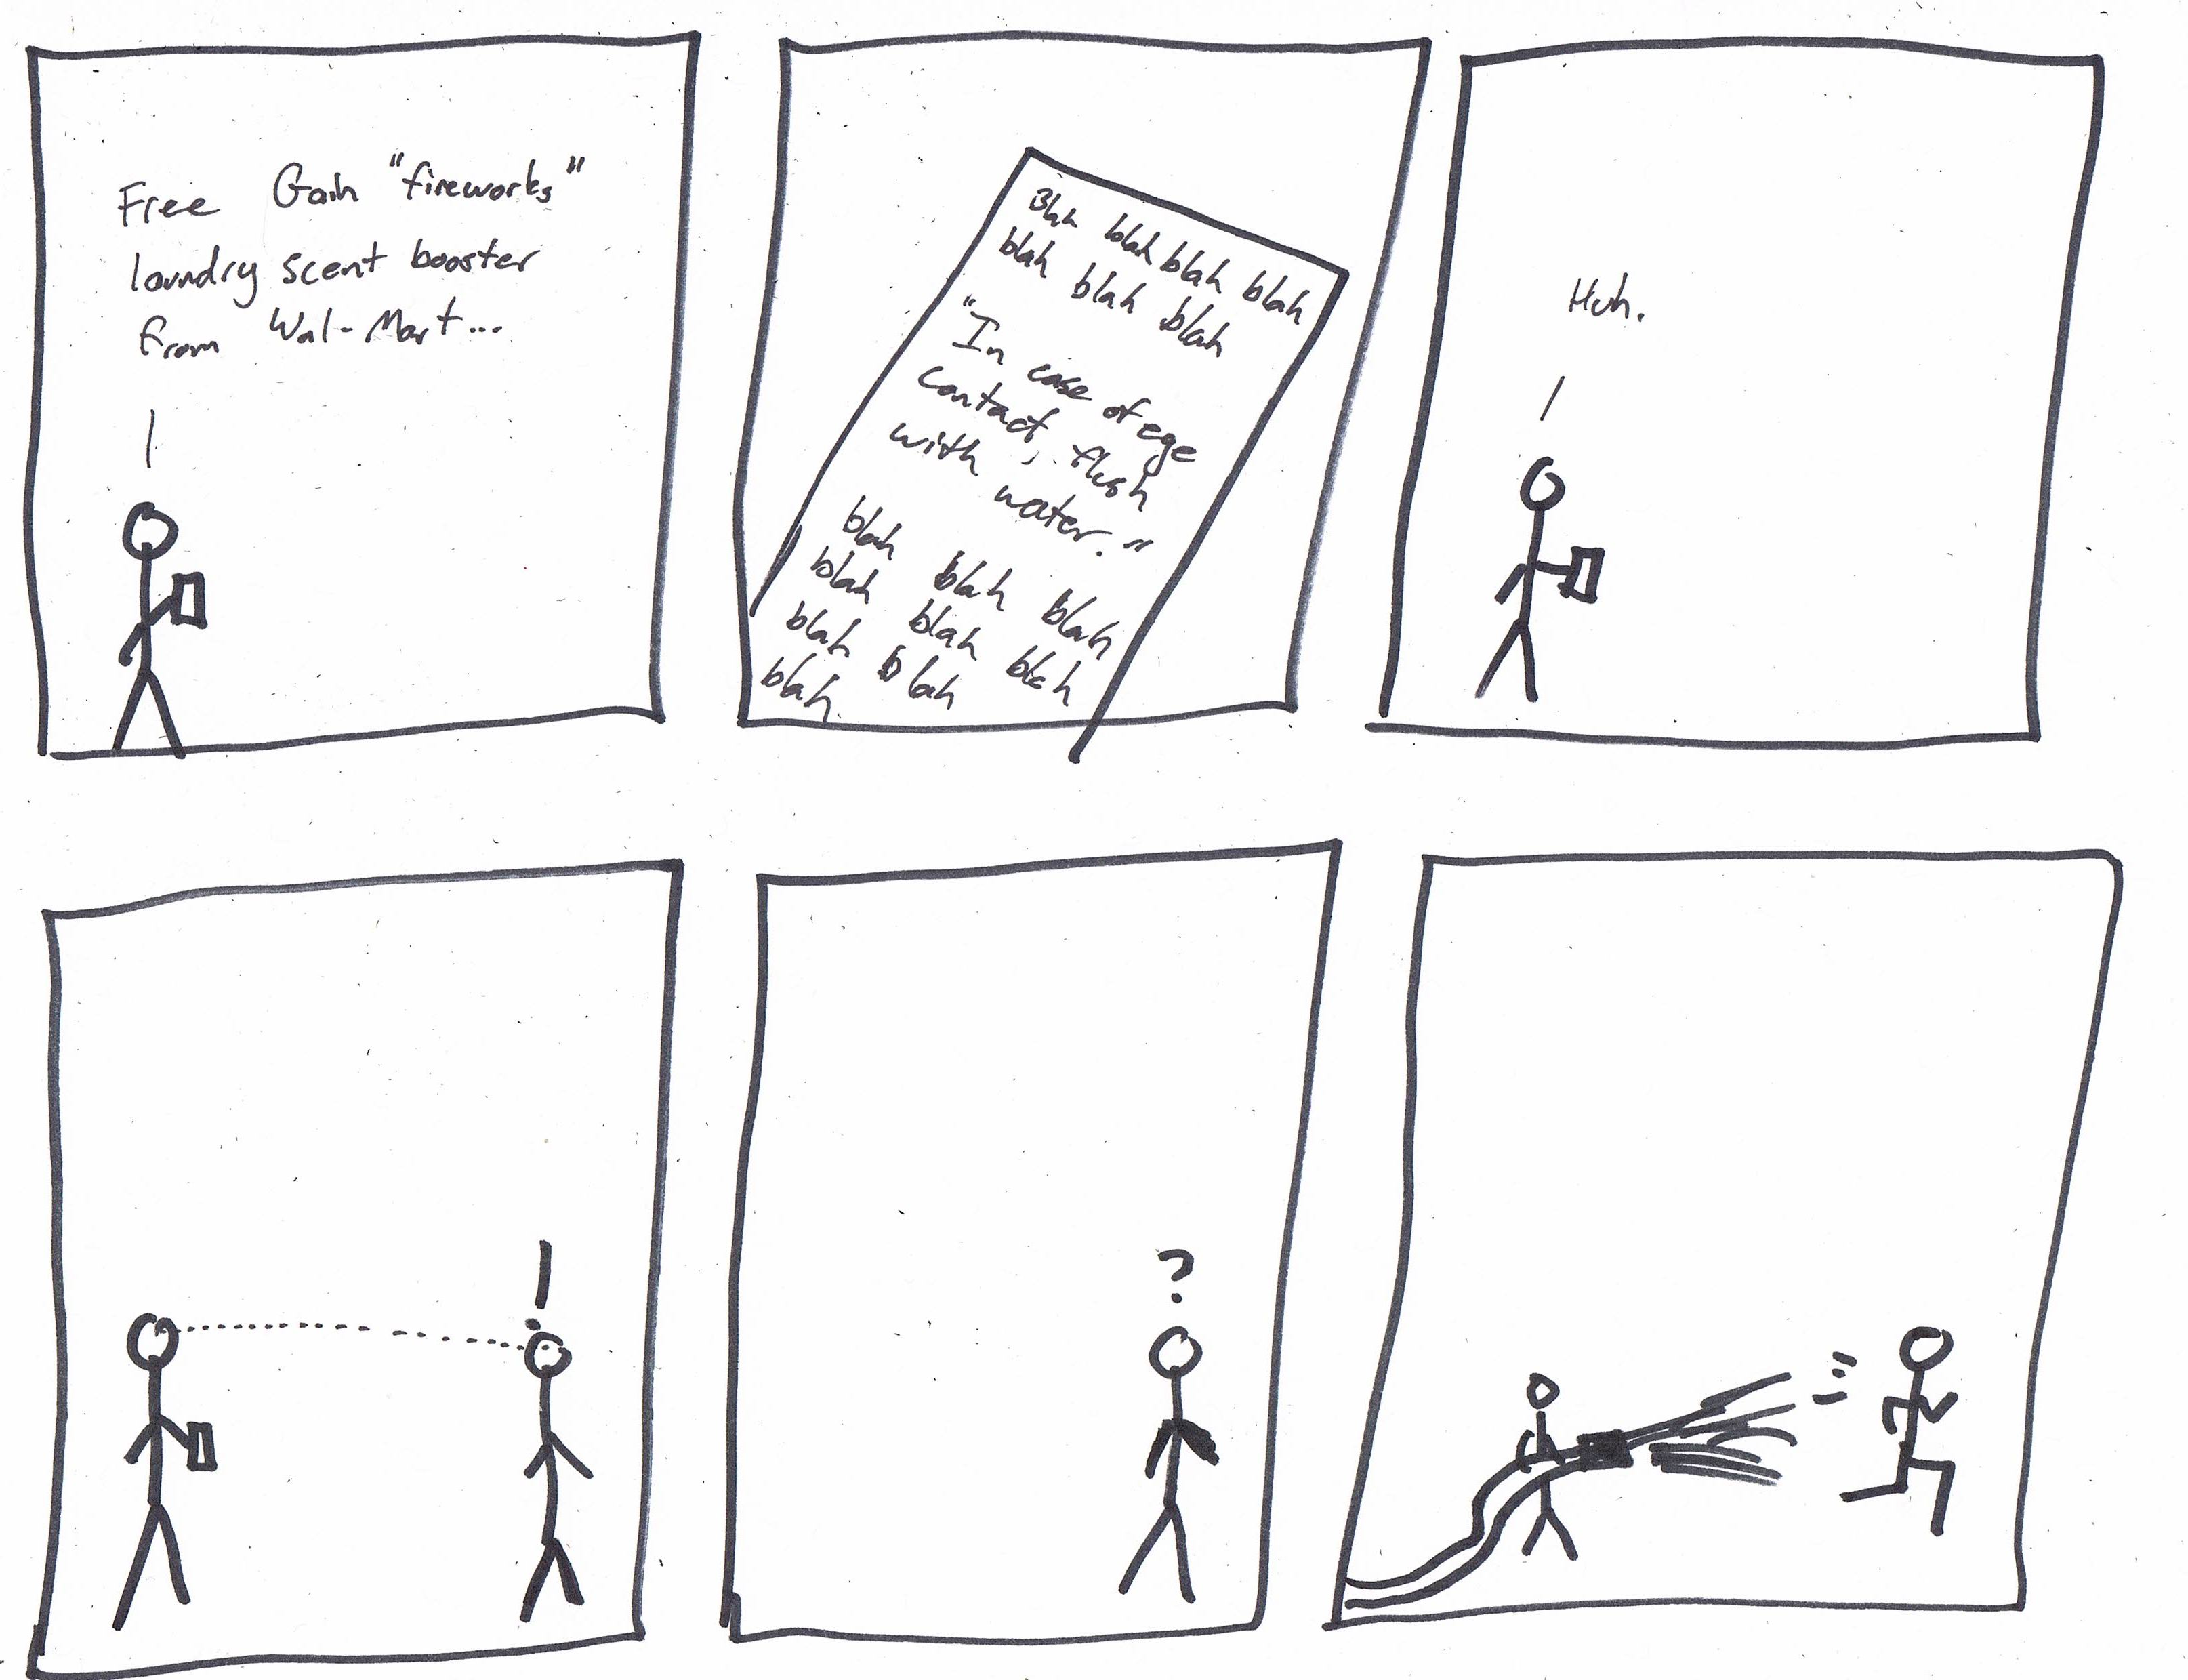 Free Gain "fireworks"
laundry scent booster
from Wal-Mart...
Blah blah blah blah
blah blah blah
"In case of eye
contact, flush
with water."
blah blah blah
blah blah blah
blah blah blah
blah
Huh.
!
?